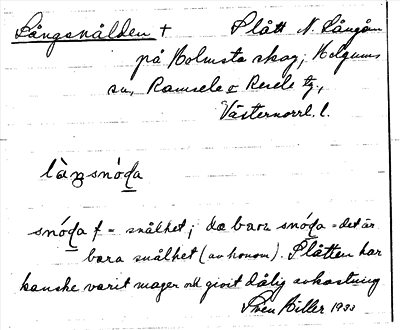 Långsnålden + Slått N. Långån
på Holmsta skog, Helgums
sn, Ramsele o Resele tg.,
Västernorrl. l.
làŋsnóda
snóda f = snålhet; dæ bara snóda = det är
bara snålhet (av honom). Slåtten har
kanske varit mager och givit dålig avkastning
Sven Biller 1933